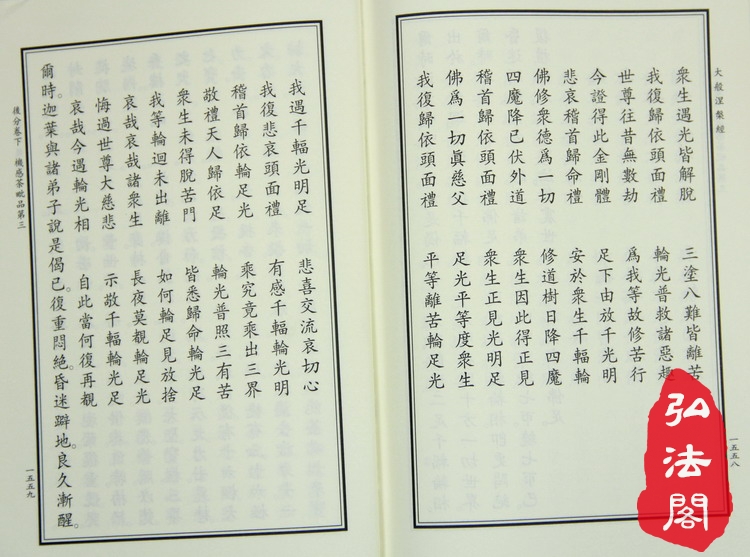 大般涅槃經
衆生遇光皆解脫 三塗八難皆離苦
我復歸依頭面禮 輪光普救諸惡趣
世尊往昔無數劫 爲我等故修苦行
今證得此金剛體 足下由放千光明
悲哀稽首歸命禮 安於衆生千輻輪
佛修衆德爲一切 修道樹日降四魔
四魔降已伏外道 衆生因此得正見
稽首歸依頭面禮 衆生正見光明足
佛爲一切眞慈父 足光平等度衆生
我復歸依頭面禮 平等離苦輪足光
一五五八
我遇千輻光明足 悲喜交流哀切心
我復悲哀頭面禮 有感千輻輪光明
稽首歸依輪足光 乘究竟乘出三界
敬禮天人歸依足 輪光普照三有苦
衆生未得脫苦門 皆悉歸命輪光足
我等輪迴未出離 如何輪足見放捨
哀哉哀哉諸衆生 長夜莫覩輪足光
悔過世尊大慈悲 示敬千輻輪光足
哀哉今遇輪光相 自此當何復再覩
爾時。迦葉與諸弟子說是偈已。復重悶絕。昏迷躃地。良久漸醒。
後分卷下 機感荼毗品第三
一五五九
弘法閣